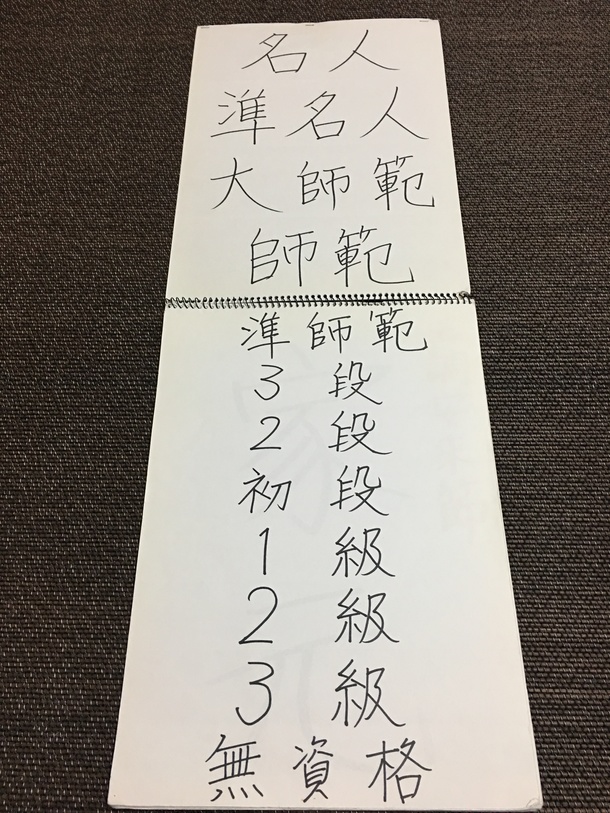 名人
準名人
大師範
師範
準師範
3段
2段
初段
1級
2級
3級
無資格